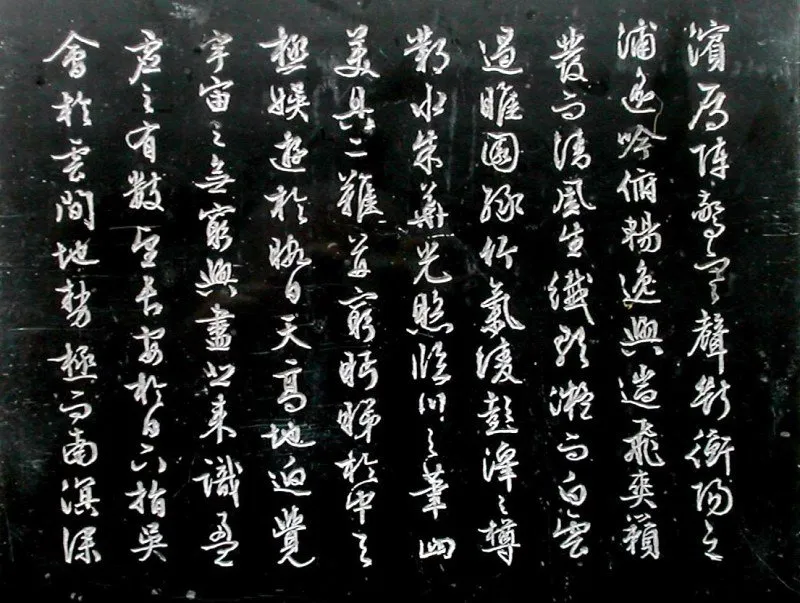 濱雁陣驚寒聲斷衡陽之
浦遙吟俯暢逸興遄飛爽籟
發而清風生纖歌凝而白雲
遏睢園綠竹氣凌彭澤之樽
鄴水朱華光照臨川之筆四
美具二難并窮眄睇於中天
極娛遊於暇日天高地迥覺
宇宙之無窮興盡悲來識盈
虛之有數望長安於日下指吳
會於雲間地勢極而南溟深